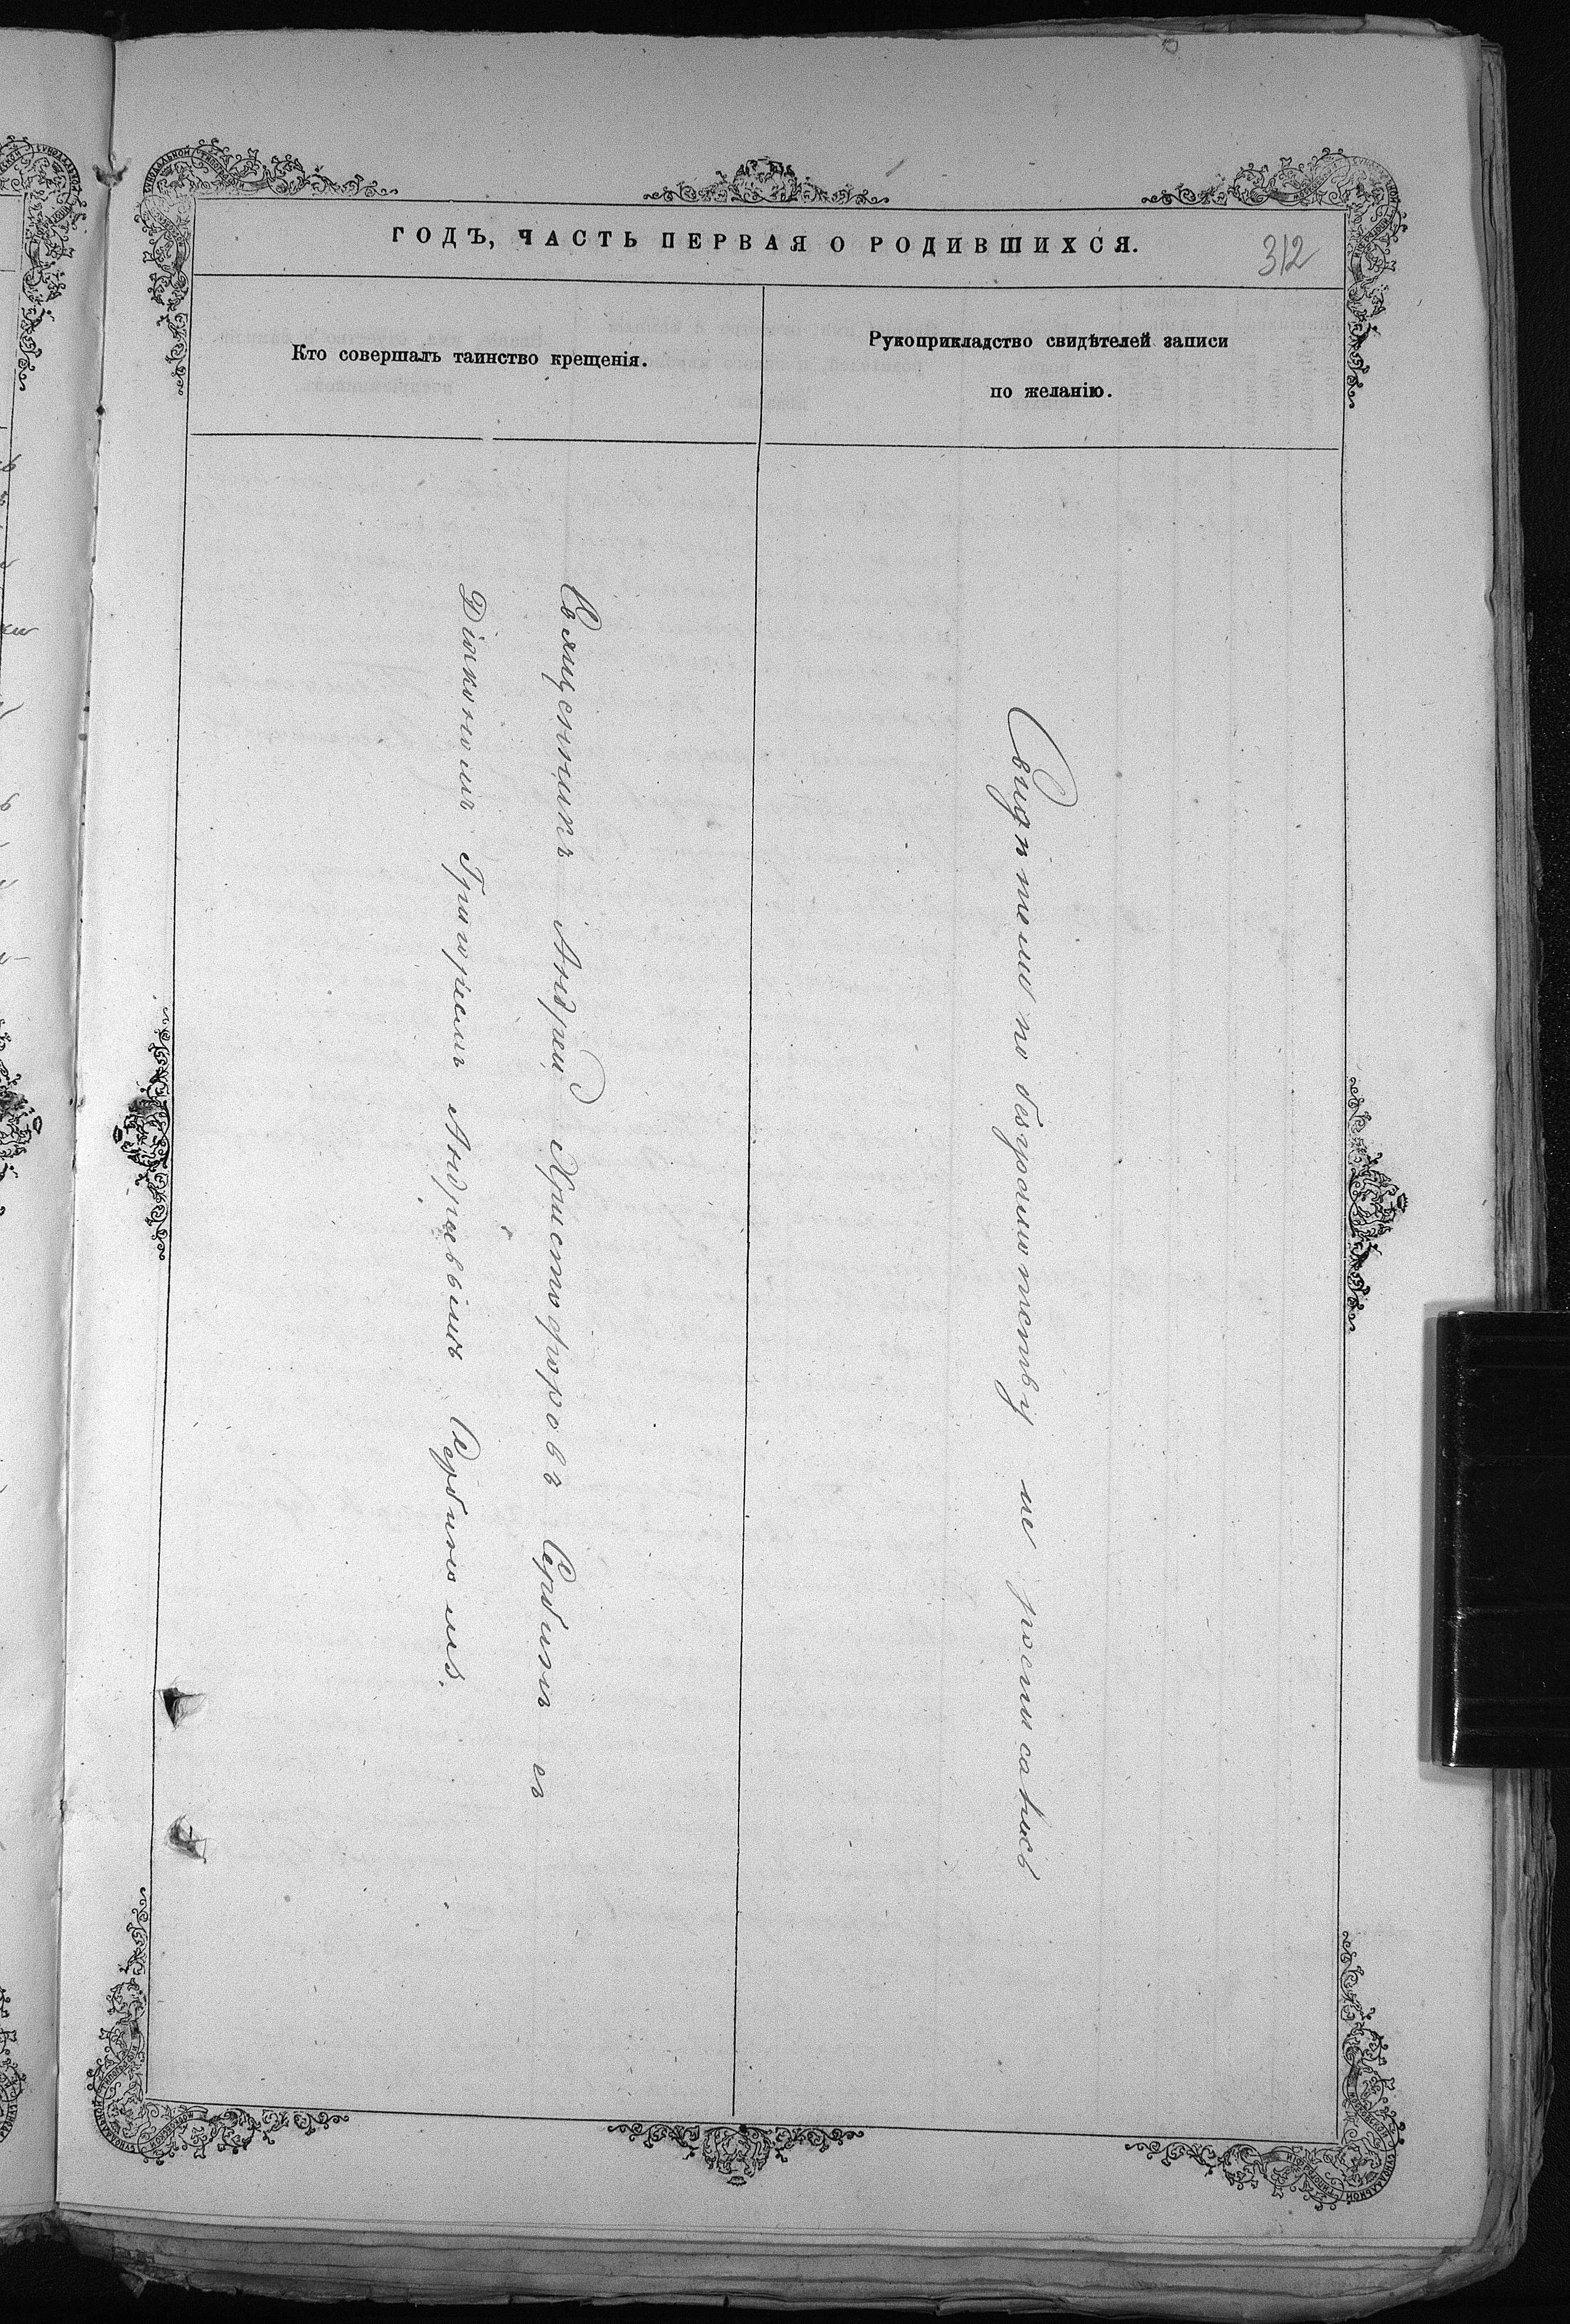 ГОДЪ, ЧАСТЬ ПЕРВАЯ О РОДИВШИХСЯ.
312
Кто совершалъ таинство крещенія.
Рукоприкладство свидѣтелей записи
по желанію.
Священникъ Андрей Христофоровъ Сербинъ съ
Діакономъ Григоріемъ Андреевымъ Сербинымъ.
Свидѣтели по безграмотству не росписались